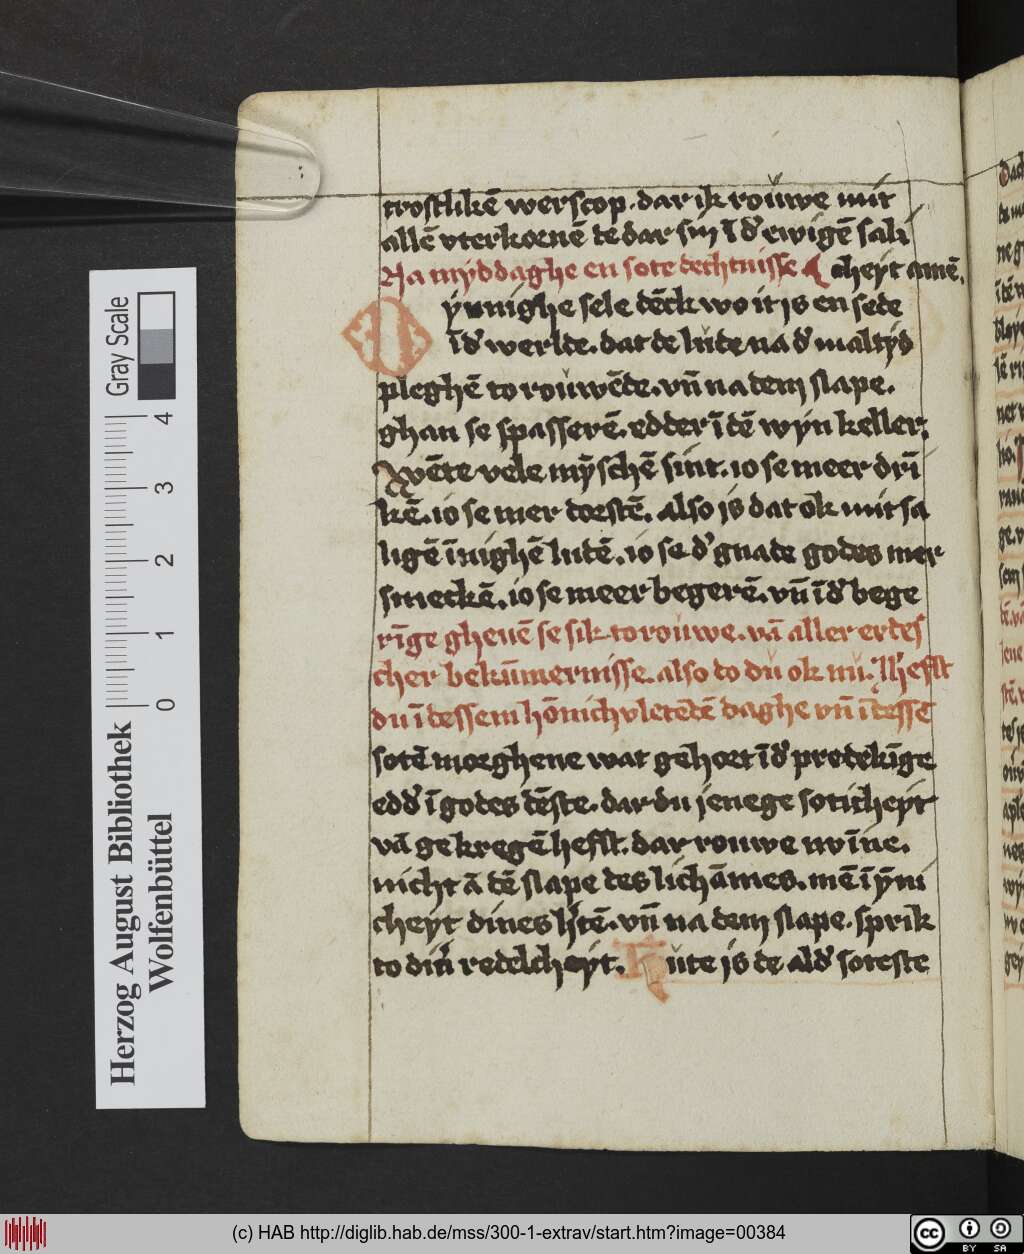 trostlikē werscop. dar ik rouwe mit
allē vterkorenē te dar sin ī d' ewigē sali
Na myddaghe en sote dechtnisse cheyt amē.
O ynnighe sele dēck wo it is en sede
ī d' werlde. dat de lude na d' maltyd
pleghē to rouwēde. vn̄ na dem slape.
ghan se spasserē. edder ī dē wyn keller.
Wēte vele mȳschē sint. io se meer drī
kē. io se mer dorstē. also is dat ok mit sa
ligē īnighē ludē. io se d' gnade godes mer
smeckē. io se meer begerē. vn̄ ī d' bege
rīge gheuē se sik to rouwe. vā aller erdes
cher bekūmernisse. also do du ok nu. Hefst
du ī dessem hōnichvletēdē daghe vn̄ ī desse
sotē morghene wat gehort ī d' predekīge
edd' ī godes dēste. dar du jenege soticheyt
vā gekregē hefst. dar rouwe nv īne.
nicht ā dē slape des lichāmes. mē ī ȳni
cheyt dines h'tē. vn̄ na dem slape. sprik
to din' redelcheyt. Hute is de ald' soteste
Herzog August Bibliothek
Wolfenbüttel
Gray Scale
0 1 2 3 4
(c) HAB http://diglib.hab.de/mss/300-1-extrav/start.htm?image=00384
cc BY SA